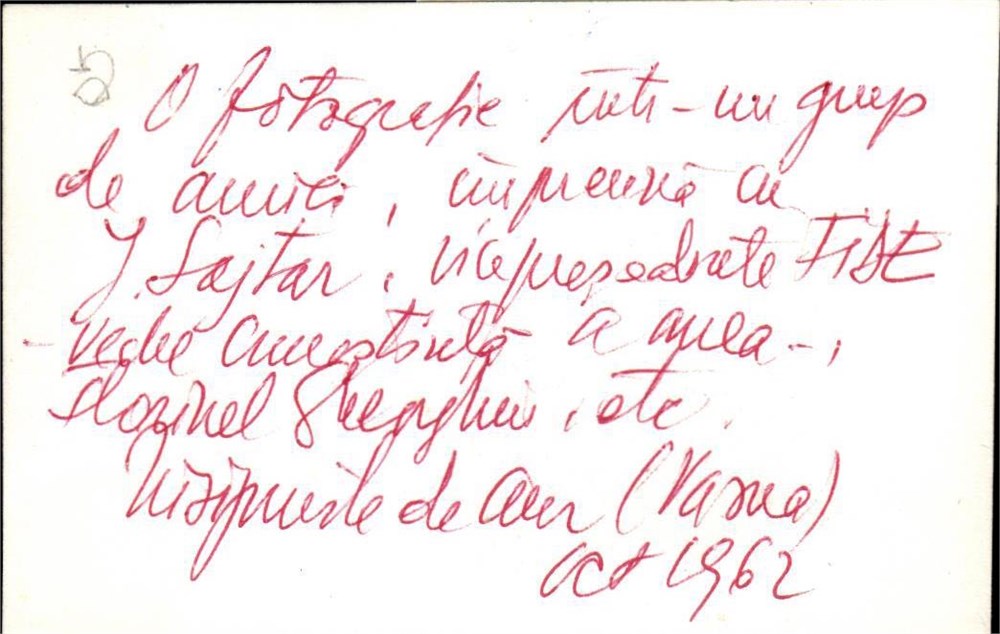 25
O fotografie într-un grup
de amici, împreună cu
J. Sajtar, vicepreședinte FIDE
- veche cunoștință a mea -,
Florinel Gheorghiu, etc.
Nisipurile de Aur (Varna)
oct 1962